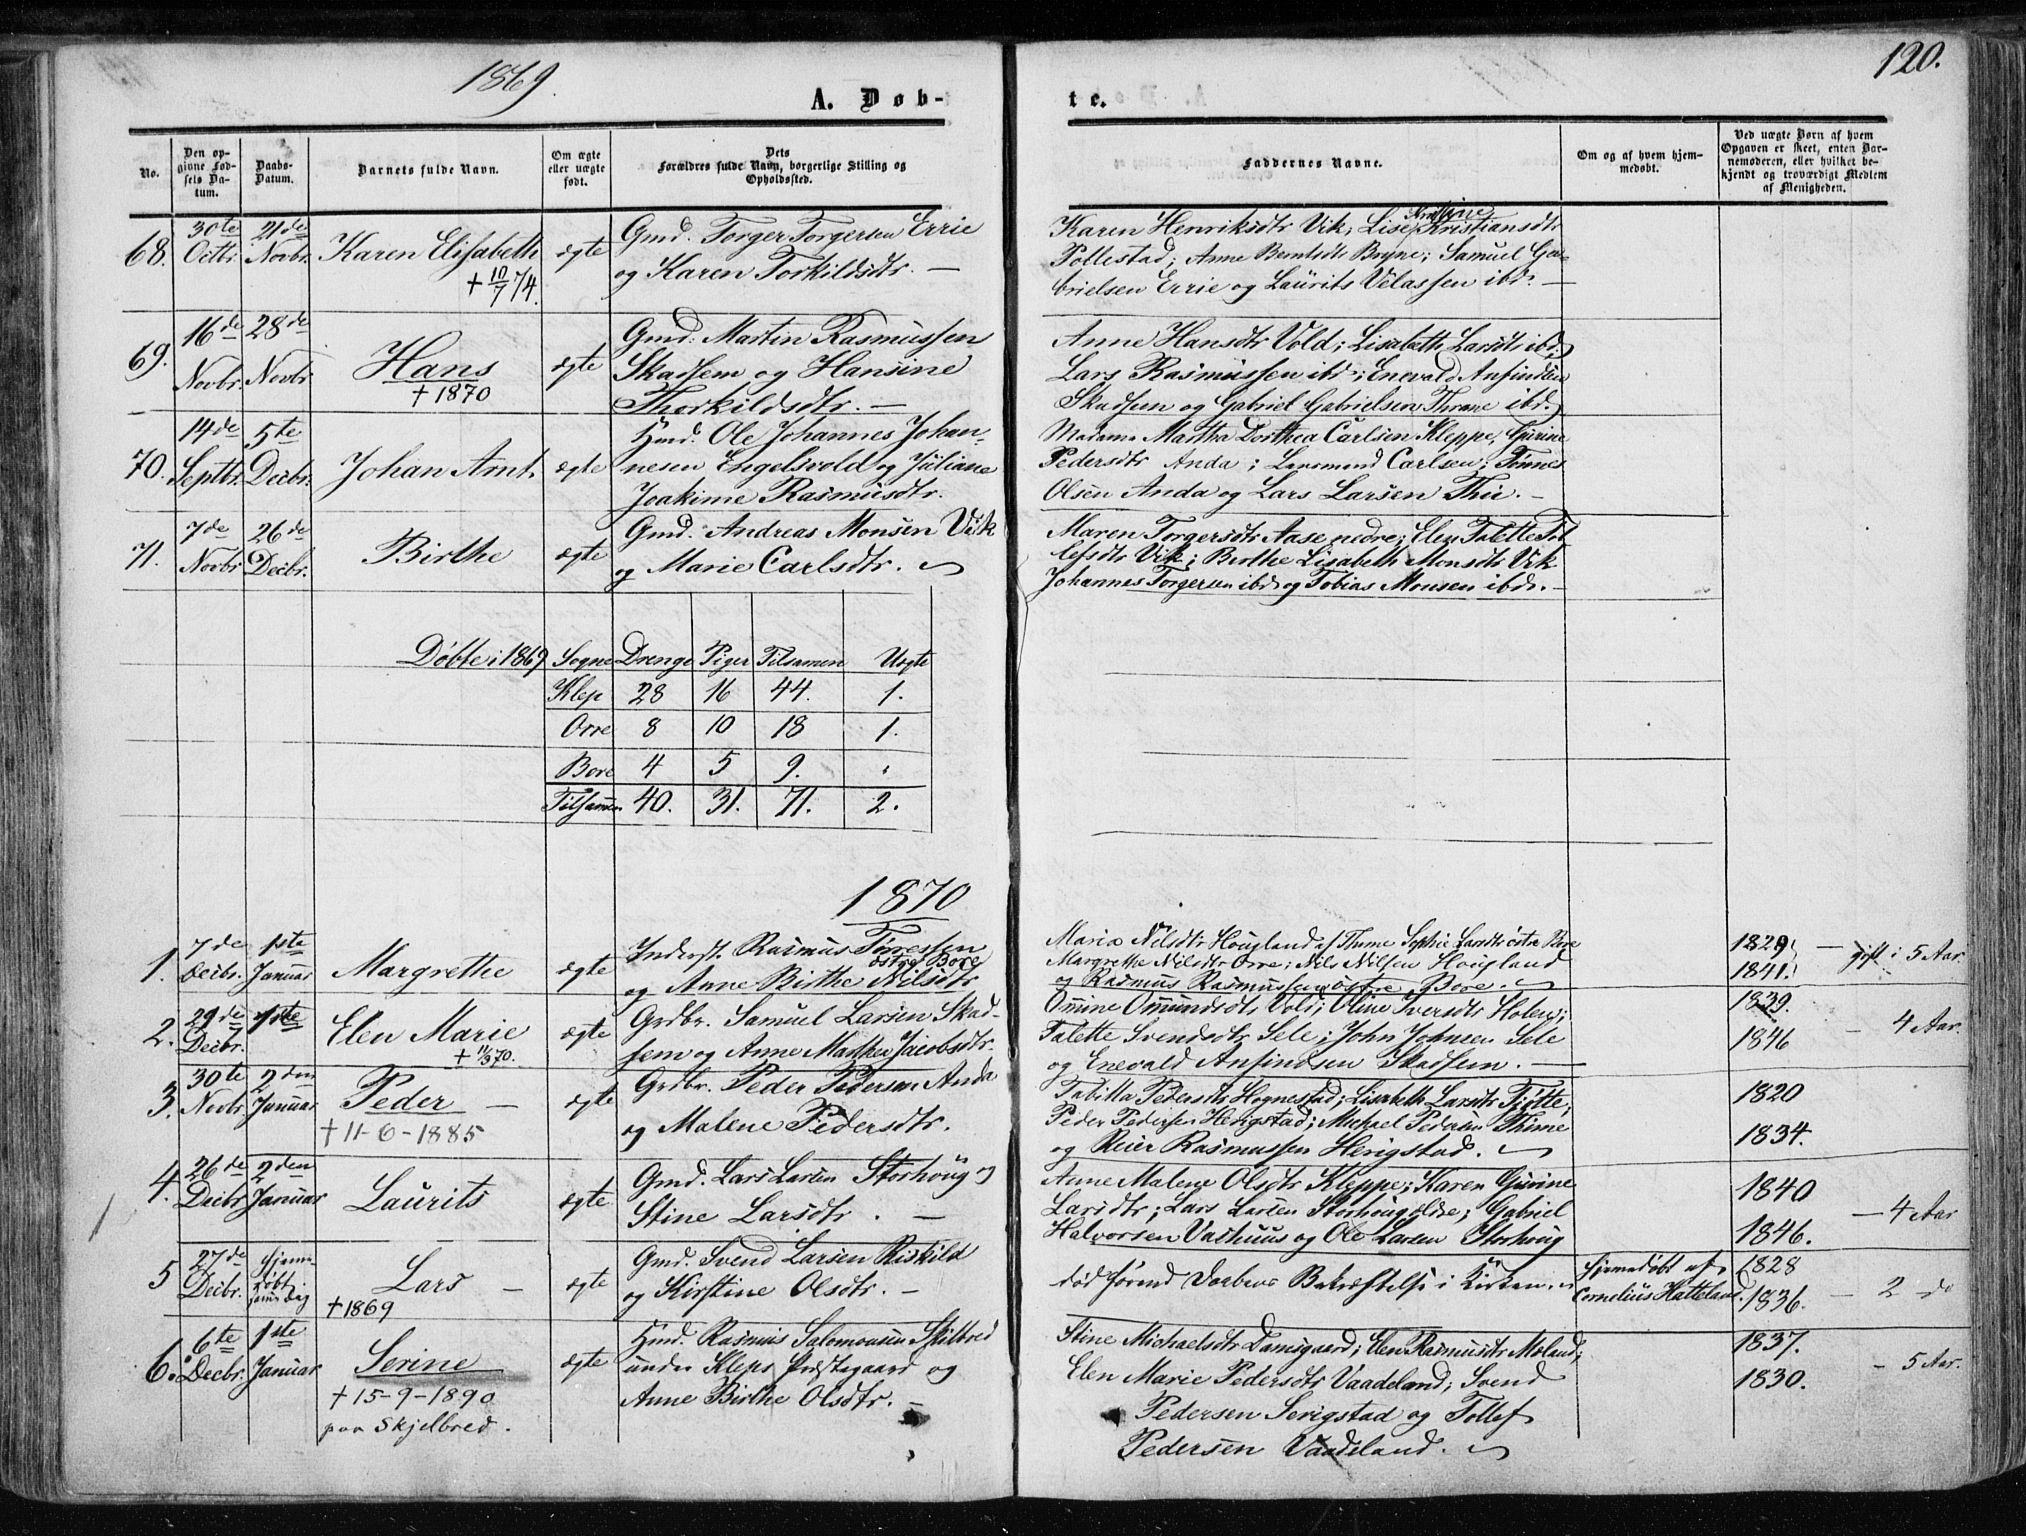 1869.
120.
A. Døb-
te.
No.
Den op-
givne Fød-
sels Da-
tum.
Daabs-
Datum.
Barnets fulde Navn.
Om ægte
eller uægte
født.
Dets
Forældres fulde Navn, borgerlige Stilling og
Opholdssted.
Faddernes Navne.
Om og af hvem hjem-
medøbt.
Ved uægte Børn af hvem
Opgaven er skeet, enten Bar-
nemoderen, eller hvilket be-
kjendt og troværdigt Medlem
af Menigheden.
68. 30te Octbr. 21de Novbr. Karen Elisabeth ægte
+ 10/7 74.
Gmd. Torger Torgersen Errie
og Karen Torkildsdtr. —
Karen Henriksdtr Vik; Lise Kristine Kristiansdtr
Pollestad; Anne Berntsdtr Bryne; Samuel Ga-
brielsen Errie og Laurits Velassen ibd. —
69. 16de Novbr. 28de Novbr Hans ægte
+ 1870
Gmd. Martin Rasmussen
Skadsem og Hansine
Thorkildsdtr. —
Anne Hansdtr Vold; Lisabeth Larsdtr ibd;
Lars Rasmussen ibd; Enevald Anfindsen
Skadsem og Gabriel Gabrielsen Thrane ibd.
70. 14de Septbr. 5te Decbr. Johan Arnt. ægte
Hmd. Ole Johannes Johan-
nesen Engelsvold og Juliane
Joakime Rasmusdtr.
Madame Martha Dorthea Carlsen Kleppe, Gurine
Pedersdtr Anda; Lensmand Carlsen; Tønnes
Olsen Anda og Lars Larsen Thu. —
71. 7de Novbr 26de Decbr. Birthe ægte
Gmd. Andreas Monsen Vik
og Marie Carlsdtr.
Maren Torgersdtr Aase nedre; Elen Talette Tol
lefsdtr Vik; Berthe Lisabeth Monsdtr Vik
Johannes Torgersen ibd og Tobias Monsen ibd. —
Døbte i 1869 Sogne Drenge Piger Tilsamen Uægte
Klep 28 16 44. 1.
Orre 8 10 18 1.
Bore 4 5 9. "
Tilsamen 40. 31. 71. 2.
1870
1. 7de Decbr. 1ste Januar Margrethe ægte
Inderst. Rasmus Tøressen
østre Bore
og Anne Birthe Nilsdtr
Maria Nilsdtr Hougland af Thime Sophie Larsdtr østre Bore
Margrethe Nilsdtr Orre; Nils Nilsen Hougland
og Rasmus Rasmussen østre Bore.
1829.
1841. — gift i 5 Aar.
2. 29de Decbr. 1ste Elen Marie ægte
+ 11/3 70.
Grdbr. Samuel Larsen Skad-
sem og Anne Marthea Jacobsdtr.
Omine Omundsdtr Vold; Oline Iversdtr
Talette Svendsdtr Sele; John Johnsen Sele
og Enevald Anfindsen Skadsem. —
1839.
1846 — 4 Aar.
3. 30te Novbr. 2den Januar Peder — ægte
+ 11-6-1885
Grdbr. Peder Pedersen Anda
og Malene Pedersdtr.
Tabitta Pedersdtr Hognestad; Lisabeth Larsdtr Tjøtte;
Peder Pedersen Herigstad; Michael Pedersen Thime
og Reier Rasmussen Herigstad.
1820
1834.
4. 26de Decbr 2den Januar Laurits ægte
Gmd. Lars Larsen Storhoug og
Stine Larsdtr. —
Anne Malene Olsdtr Kleppe; Karen Gurine
Larsdtr; Lars Larsen Storhoug ældre; Gabriel
Halvorsen Vashuus og Ole Larsen Storhoug
1840
1846. — 4 Aar
5 27de Decbr. hjem-
døbt
samme Dag Lars — ægte
+ 1869
Gmd. Svend Larsen Riskild
og Kirstine Olsdtr. —
død førend Daabens Bekræftelse i Kirken.
hjemmedøbt af
Cornelius Hatteland.
1828
1836. — 2 do
6. 6te Decbr. 1ste Januar Serine ægte
+ 15-9-1890
paa Skjelbred.
Hmd. Rasmus Salomonsen Skilbred
under Kleps Præstegaard og
Anne Birthe Olsdtr. —
Stine Michaelsdtr Damsgaard; Elen Rasmusdtr Moland;
Elen Marie Pedersdtr Vaadeland; Svend
Pedersen Serigstad og Tollef
Pedersen Vaadeland.
1837.
1830. — 5 Aar.